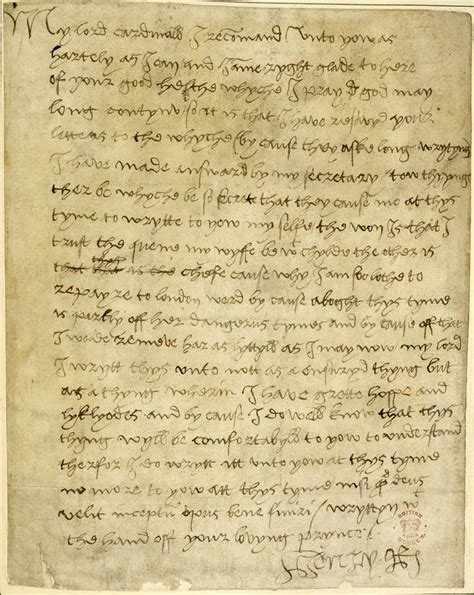 My lord cardinall I recomand unto yow as
hartely as I can and I ame ryght glade to here
of your good helthe whyche I pray god may
long contynu / so it is that I have resayvyd your
letters to the whyche (by cause they aske long wrytyng
I have made answard by my secretary / tow thyngs
ther be whyche be so secret that they cause me at thys
tyme to wrytte to yow my selfe the won is that I
trust the quene my wyffe be wt chylde the other is
chefe cause why I am so lothe to
repayre to london werd by cause aboght thys tyme
is partly off her dangerus tymes and by cause off that
I wolde remeve har as lyttyll as I may now my lord
I wrytt thys unto not as a ensuryd thyng but
as a thyng wherin I have grette hoppe and
lyklyodes and by cause I do well know that thys
thyng wyll be comfortabyll to yow to understand
therfor I do wrytt itt unto yow at thys tyme
no more to yow att thys tyme nisi qd deus
velit inceptum opus bene finiri / wryttyn wt
the hand off your lovyng prynce
Henry R
BRITISH MUSEUM